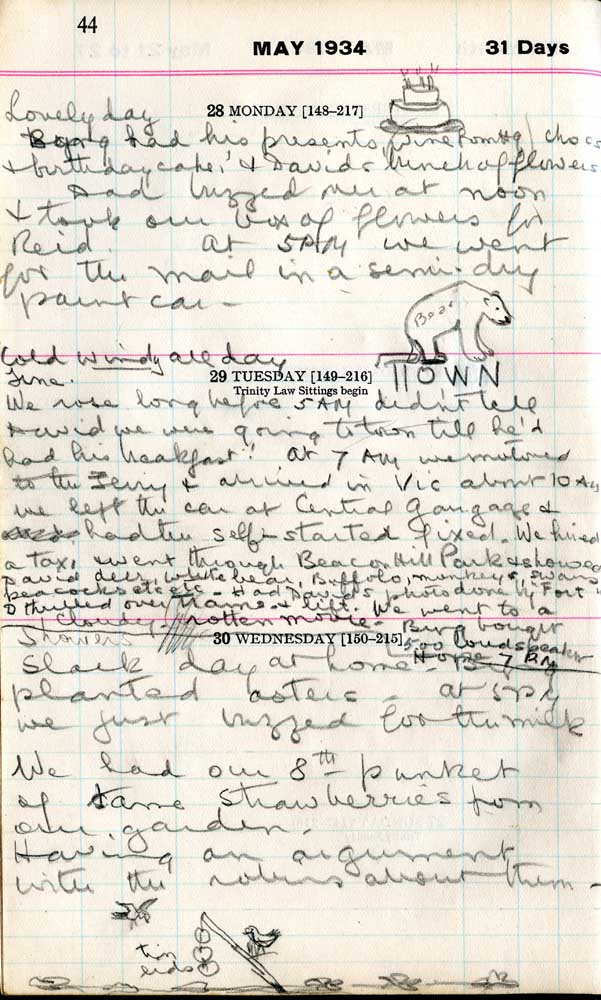 44
MAY 1934 31 Days
28 MONDAY [148–217]
Lovely day
had his presents, wine from Hg, chocs
& birthday cake! & David's bunch of flowers
Dad buzzed me at noon
& took our box of flowers for
Reid. At 5 PM we went
for the mail in a semi-dry
paint car –
Bear
TOWN
Cold windy all day
Fine.
29 TUESDAY [149–216]
Trinity Law Sittings begin
We rose long before 5 AM didn't tell
David we were going to town till he'd
had his breakfast! At 7 AM we motored
to the Ferry & arrived in Vic about 10 AM
we left the car at Central Gaugage &
had the self-started fixed. We hired
a taxi & went through Beacon Hill Park & showed
David deer, white bear, Buffalo, monkeys, swans
peacocks etc etc – Had David's photo done by Fort
D thrilled over trams & lift. We went to a
rotten movie – bought
500 loudspeaker
Home 7 PM
Cloudy
Showers
30 WEDNESDAY [150–215]
Slack day at home –
planted asters – at 5 PM
we just buzzed for the milk
We had our 8th punket
of tame strawberries from
our garden.
Having an argument
with the robins about them –
tin
lids